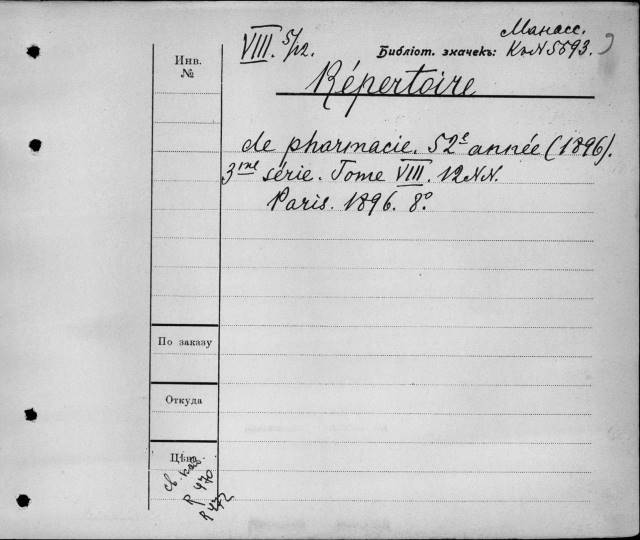 Манасс.
VIII. 5/12. Библіот. значекъ: К.N 5593.
Инв.
№
Répertoire
de pharmacie. 52e année (1896).
3me série. Tome VIII. 12 NN.
Paris. 1896. 8o.
По заказу
Откуда
Цѣна
св. каб.
R 470
R 472